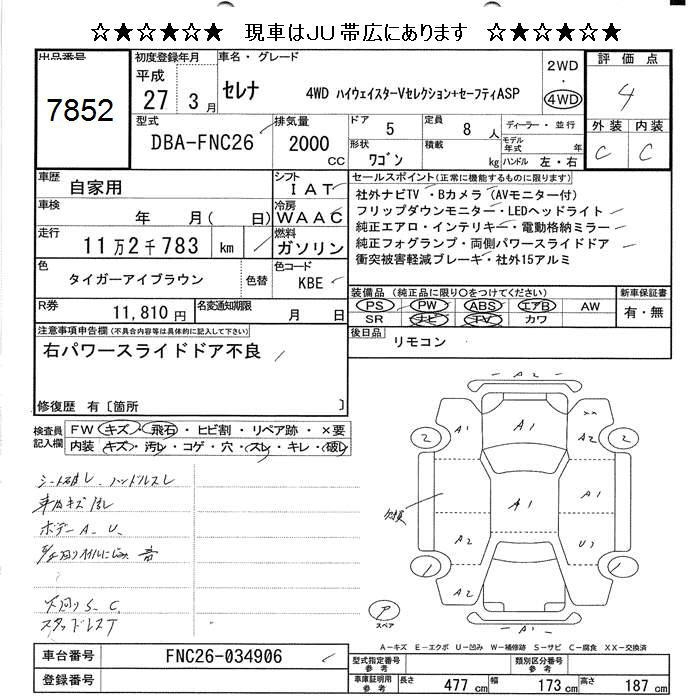 ☆★☆★☆★ 現車はJU帯広にあります ☆★☆★☆★
出品番号
7852
初度登録年月
平成
27 3月
車名・グレード
セレナ 4WD ハイウェイスターVセレクション+セーフティASP
2WD
・
4WD
評価点
4
外装 内装
C C
型式
DBA-FNC26
排気量
2000
CC
ドア 5
定員 8人
ディーラー・並行
形状 ワゴン
積載 kg
モデル年式 年
ハンドル 左・右
車歴 自家用
シフト IAT
車検 年 月( 日)
冷房 WAAC
走行 11万2千783 km
燃料 ガソリン
色 タイガーアイブラウン
色替
色コード KBE
R券 11,810円
名変通知期限 月 日
セールスポイント(正常に機能するものに限ります)
社外ナビTV・Bカメラ(AVモニター付)
フリップダウンモニター・LEDヘッドライト
純正エアロ・インテリキー・電動格納ミラー
純正フォグランプ・両側パワースライドドア
衝突被害軽減ブレーキ・社外15アルミ
装備品(純正品に限り○をつけてください)
新車保証書
PS PW ABS エアB AW
SR ナビ TV カワ
有・無
後日品 リモコン
注意事項申告欄(不具合内容等は具体的に記入して下さい)
右パワースライドドア不良
修復歴 有〔箇所 〕
検査員記入欄
FW キズ・飛石・ヒビ割・リペア跡・×要
内装 キズ・汚レ・コゲ・穴・スレ・キレ・破レ
シート破レ、ハンドルスレ
車内キズ汚レ
ボデーA、U、
下回りS、C、
スタッドレスT
A2
A1
××
A1
A2
2
2
A1
A1
欠損
A2
U1
1
1
A2
A2
A1
P
スペア
A-キズ E-エクボ U-凹み W-補修跡 S-サビ C-腐食 XX-交換済
車台番号 FNC26-034906
登録番号
型式指定番号参考
類別区分番号参考
車庫証明用参考
長さ 477cm 幅 173cm 高さ 187cm